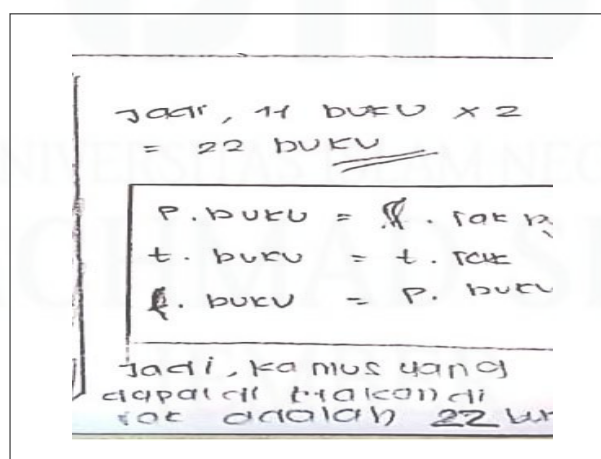 Jadi, 11 buku x 2
= 22 buku
P. buku = l. rak
t. buku = t. rak
l. buku = P. buku
Jadi, kamus yang
dapat di letakan di
rak adalah 22